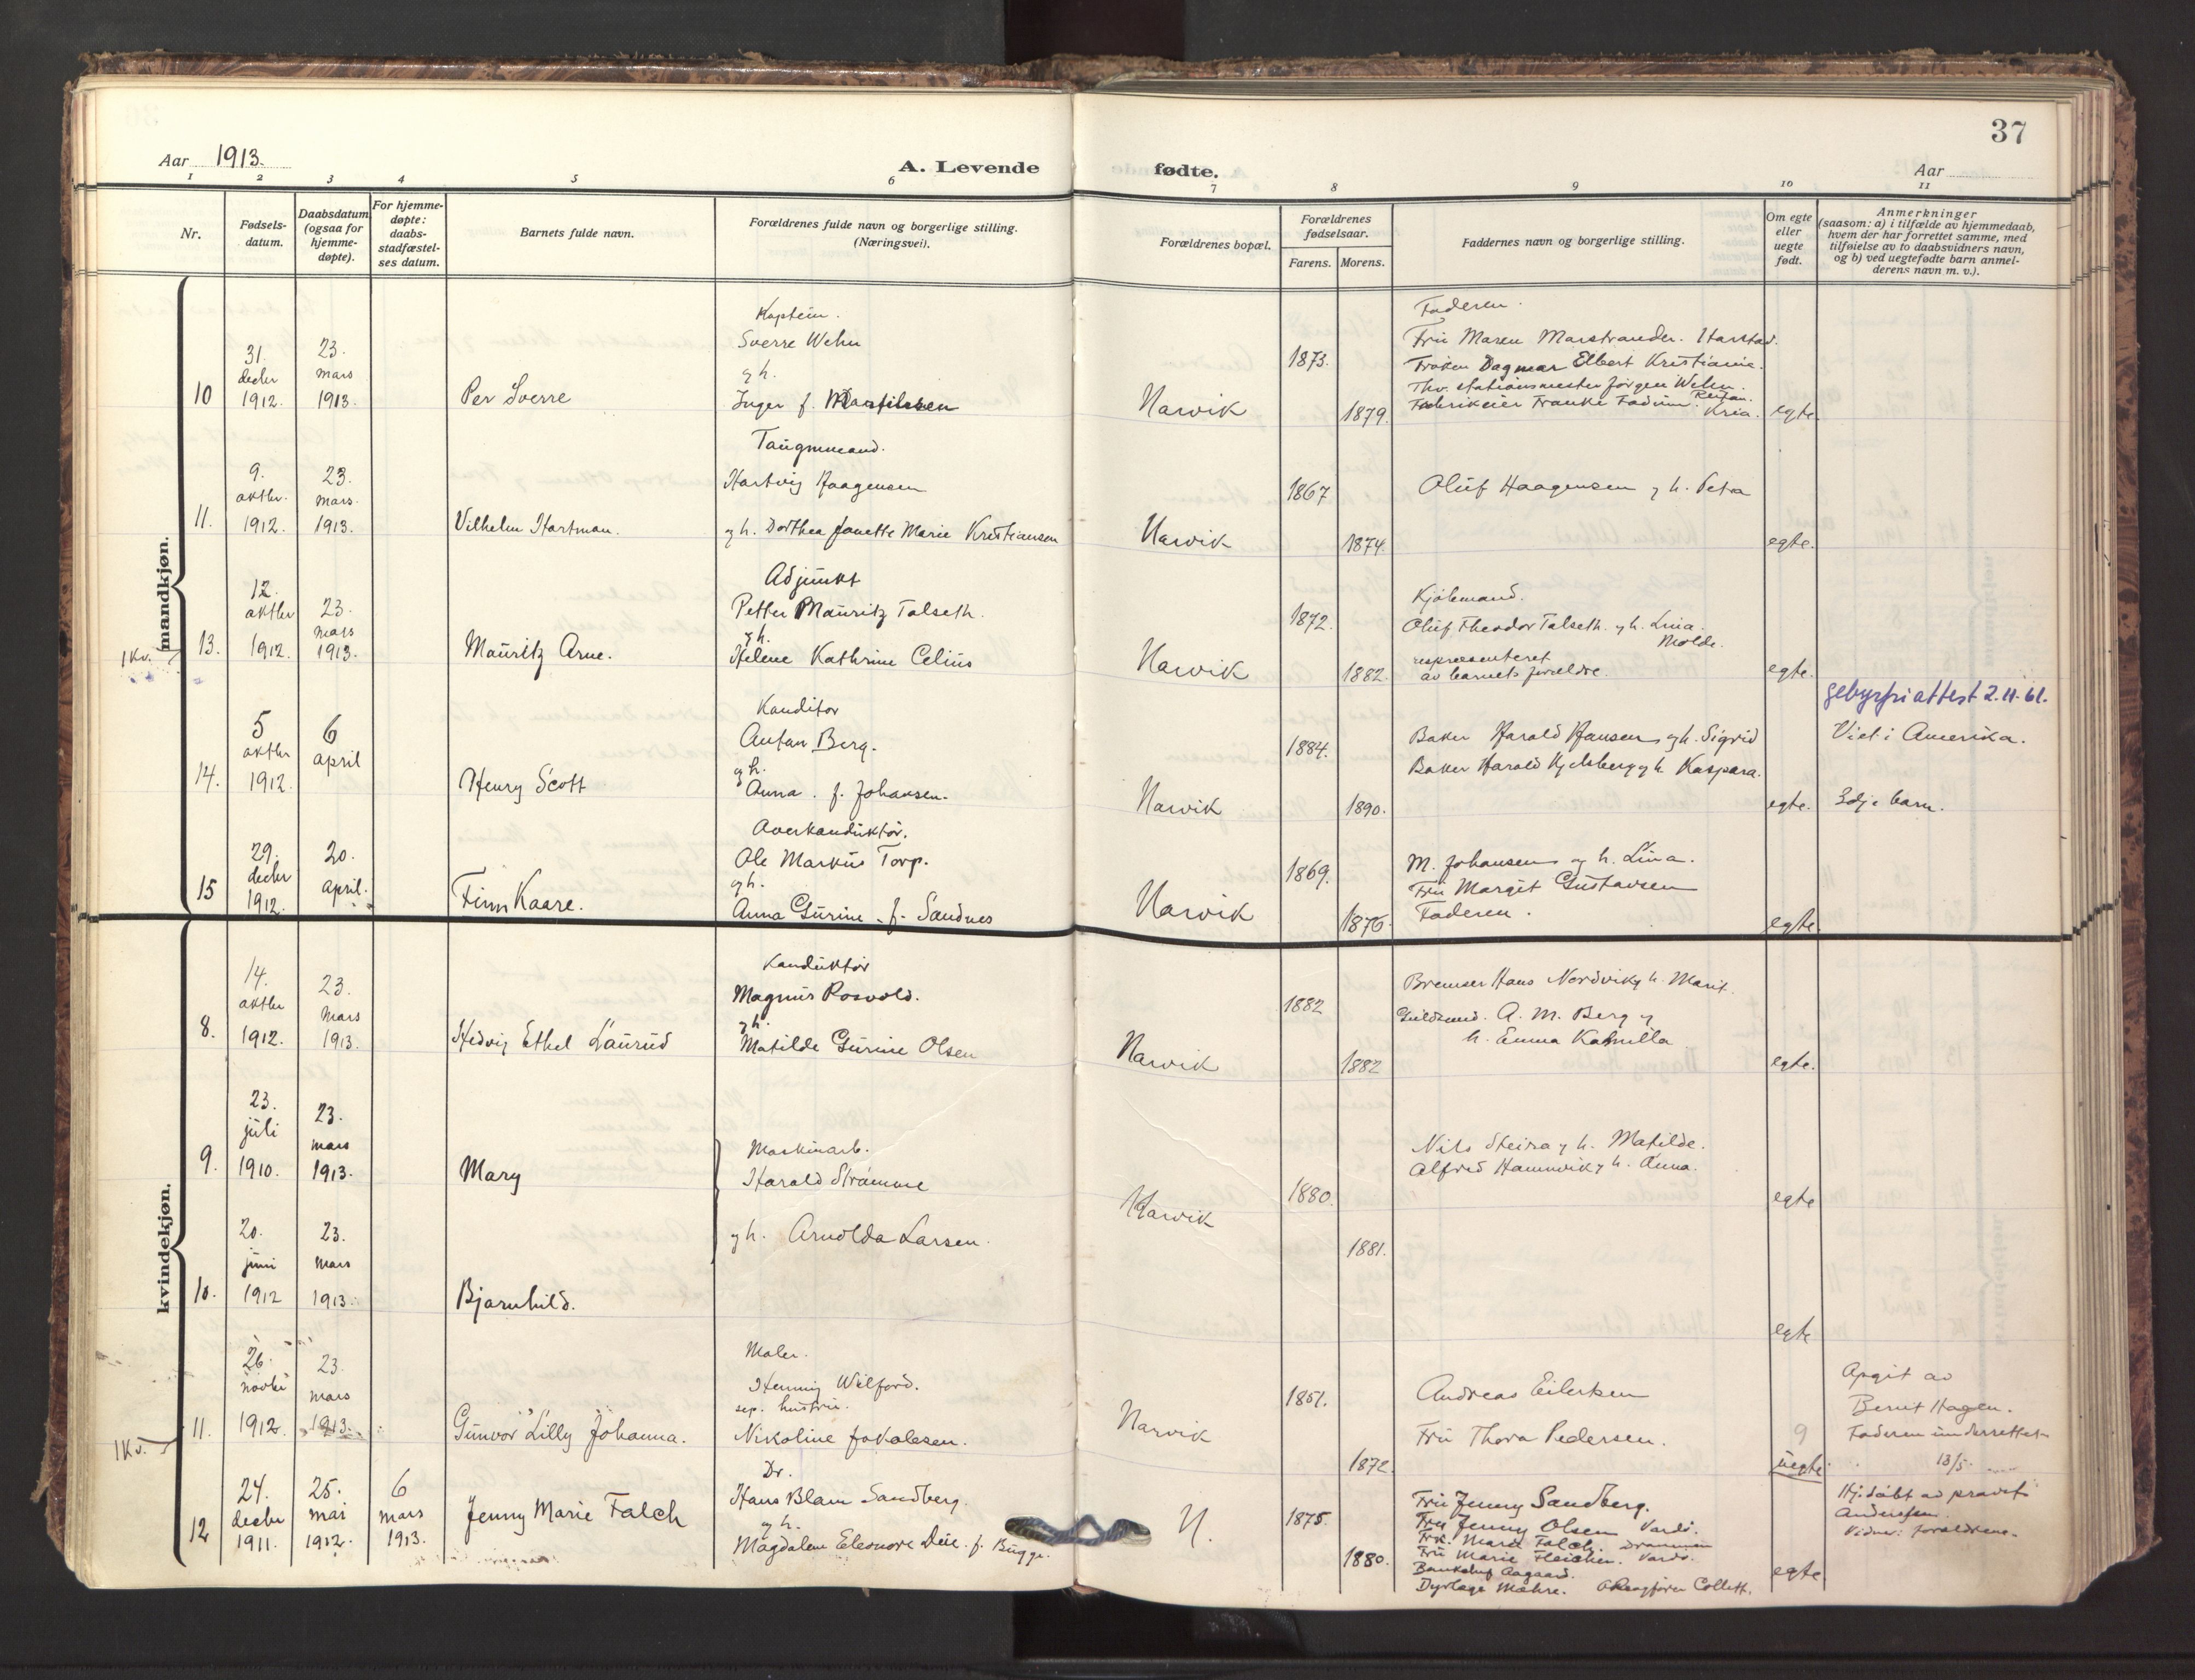 37
Aar 1913.
A. Levende fødte.
Aar
1 2 3 4 5 6 7 8 9 10 11
Nr.
Fødsels-
datum.
Daabsdatum
(ogsaa for
hjemme-
døpte).
For hjemme-
døpte:
daabs-
stadfæstel-
ses datum.
Barnets fulde navn.
Forældrenes fulde navn og borgerlige stilling.
(Næringsvei).
Forældrenes bopæl.
Forældrenes
fødselsaar.
Farens. Morens.
Faddernes navn og borgerlige stilling.
Om egte
eller
uegte
født.
Anmerkninger
(saasom: a) i tilfælde av hjemmedaab,
hvem der har forrettet samme, med
tilføielse av to daabsvidners navn,
og b) ved uegtefødte barn anmel-
derens navn m. v.).
mandkjøn.
10
31.
decbr
1912.
23.
mars
1913.
Per Sverre
Kaptein.
Sverre Wehn
g h.
Inger f.
Narvik
1873.
1879.
Faderen.
Fru Maren Marstrander. Harstad.
Frøken Dagmar Elbert Kristiania.
Thv. stationsmester Jørgen Wehn.
Fabrikeier Kria.
egte.
11.
9.
oktbr.
1912.
23.
mars.
1913.
Vilhelm Hartman.
Taugmmand.
Hartvig Haagensen
g h. Dorthea Janette Marie Kristiansen
Narvik
1867
1874.
Oluf Haagensen g h. Petra
egte.
1 Kv.
13.
12.
oktbr
1912.
23.
mars
1913.
Mauritz Arne.
Adjunkt
Petter Mauritz Talseth.
g h.
Helene Kathrine Celius
Narvik
1872.
1882.
Kjøbmand.
Oluf Theodor Talseth. g h. Lina.
Molde.
repræsenteret
av barnets forældre.
egte.
14.
5
oktbr
1912.
6
april
Henry Scott
Kanditor
Anton Berg.
g h.
Anna. f. Johansen.
Narvik
1884.
1890.
Baker Harald Hansen g h. Sigrid
Baker Harald Hjelsberg g h. Kaspara.
egte.
gebyrfri attest 2.11.61.
Viet i Amerika.
3dje barn.
15
29.
decbr
1912.
20.
april.
Finn Kaare.
Overkonduktør.
Ole Markus Torp.
g h.
Anna Gurine f. Sandnes
Narvik
1869.
1876.
M. Johansen og h. Lina.
Fru Margit Gustavsen
Faderen.
egte.
kvindekjøn.
8.
14.
oktbr
1912.
23.
mars
1913.
Hedvig Ethel Laurud
Konduktør
Magnus Rosvold.
g h.
Matilde Gurine Olsen
Narvik
1882
1882
Bremser Hans Nordvik g h. Marit.
Guldsmed. A. M. Berg g
h. Emma Kamilla
egte.
9.
23.
juli
1910.
23.
mars
1913.
Mary
Maskinarb.
Harald Strømme
g h. Arnolda Larsen.
Narvik
1880.
1881.
Nils Steira g h. Matilde.
Alfred Hamnvik g h. Anna.
egte
10.
20.
juni
1912
23.
mars
1913.
Bjarnhild.
egte
1 Kv.
11.
26.
novbr
1912.
23.
mars
1913.
Gunvor Lilly Johanna.
Maler.
Henning Wilford.
sep. hustru.
Nikoline Jakobsen.
Narvik
1851.
1872.
Andreas Eilertsen
Fru Thora Pedersen.
9
uegte
Opgit av
Berit Hagen.
Faderen underrettet
13/5.
12
24.
decbr
1911.
25.
mai
1912.
6
mars
1913.
Jenny Marie Falch
Dr.
Hans Blam Sandberg.
g h.
Magdalene Eleonore Deie. f. Bugge.
N.
1875.
1880.
Fru Jenny Sandberg.
Fru Jenny Olsen Vardø.
Frk. Marie Falch. Drammen
Fru Marie Fleicher. Vardø.
Bankchef Aagaard.
Dyrlæge Mæhre. O.Ragsfører Collett.
egte
Hj. døbt av provst
Anderssen.
Vidner: forældrene.